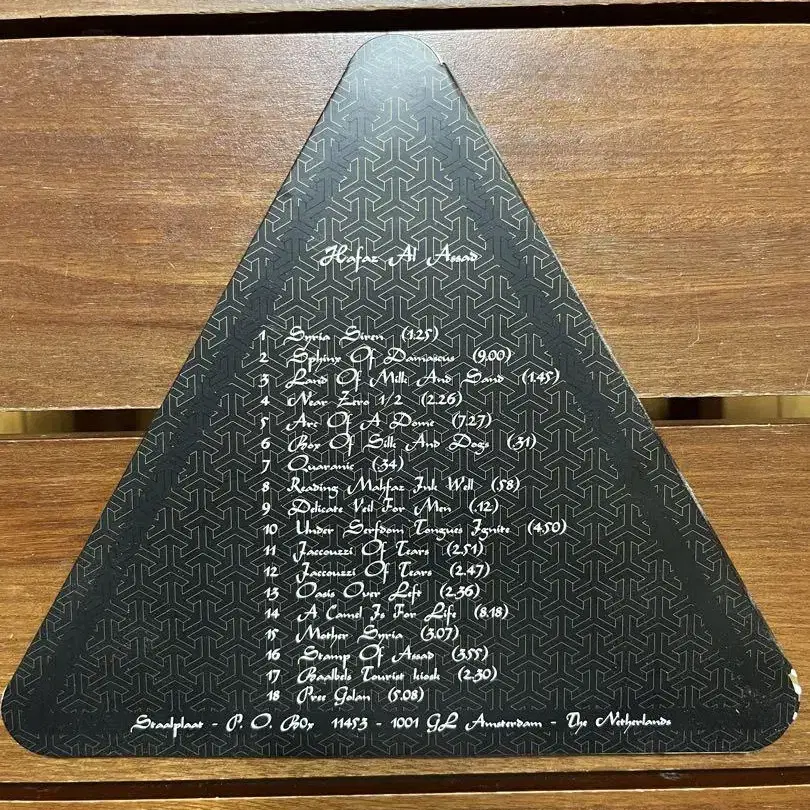 Hafaz Al Assad
1 Syria Siren (1.25)
2 Sphinx Of Damascus (9.00)
3 Land Of Milk And Sand (1.45)
4 Near Zero 1/2 (2.26)
5 Arc Of A Dome (7.27)
6 Box Of Silk And Dogs (.31)
7 Quaranic (.34)
8 Reading Mahfaz Ink Well (.58)
9 Delicate Veil For Men (.12)
10 Under Serfdom Tongues Ignite (4.50)
11 Jaccouzzi Of Tears (2.51)
12 Jaccouzzi Of Tears (2.47)
13 Oasis Over Left (2.36)
14 A Camel Is For Life (8.18)
15 Mother Syria (3.07)
16 Stamp Of Assad (3.55)
17 Baalbels Tourist kiosk (2.30)
18 Pree Golan (5.08)
Staalplaat - P. O. BOx 11453 - 1001 GL Amsterdam - The Netherlands